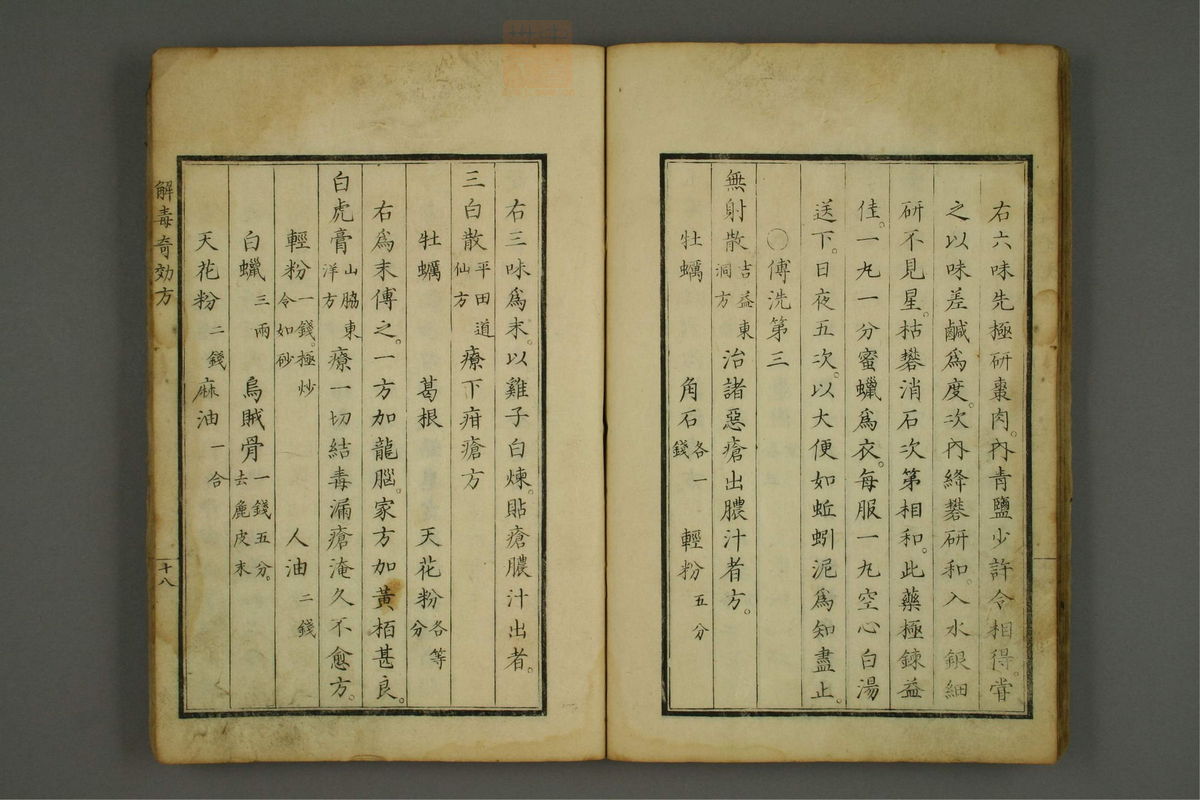 右六味先極研棗肉。內青鹽少許令相得。甞
之以味差鹹爲度。次內絳礬研和。入水銀細
研不見星。枯礬消石次第相和。此藥極鍊益
佳。一丸一分蜜蠟爲衣。每服一丸空心白湯
送下。日夜五次。以大便如蚯蚓泥爲知盡止。
○傅洗第三
無射散吉益東洞方治諸惡瘡出膿汁者方。
牡蠣 角石各一錢 輕粉五分
右三味爲末。以雞子白煉。貼瘡膿汁出者。
三白散平田道仙方療下疳瘡方
牡蠣 葛根 天花粉各等分
右爲末傅之。一方加龍腦。家方加黃栢甚良。
白虎膏山脇東洋方療一切結毒漏瘡淹久不愈方。
輕粉一錢。極炒令如砂 人油二錢
白蠟三兩 烏賊骨一錢五分。去麁皮末
天花粉二錢 麻油一合
解毒奇効方
十八